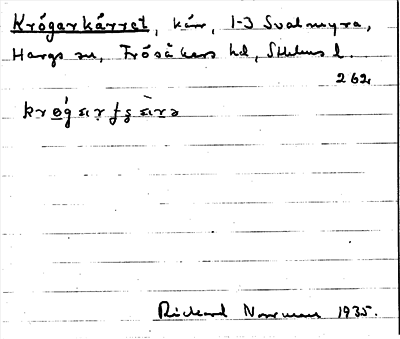 Krógarkärret, kärr, 1-3 Svalmyra,
Hargs sn, Frösåkers hd, Sthlms l.
262
Rickard Norrman 1935.